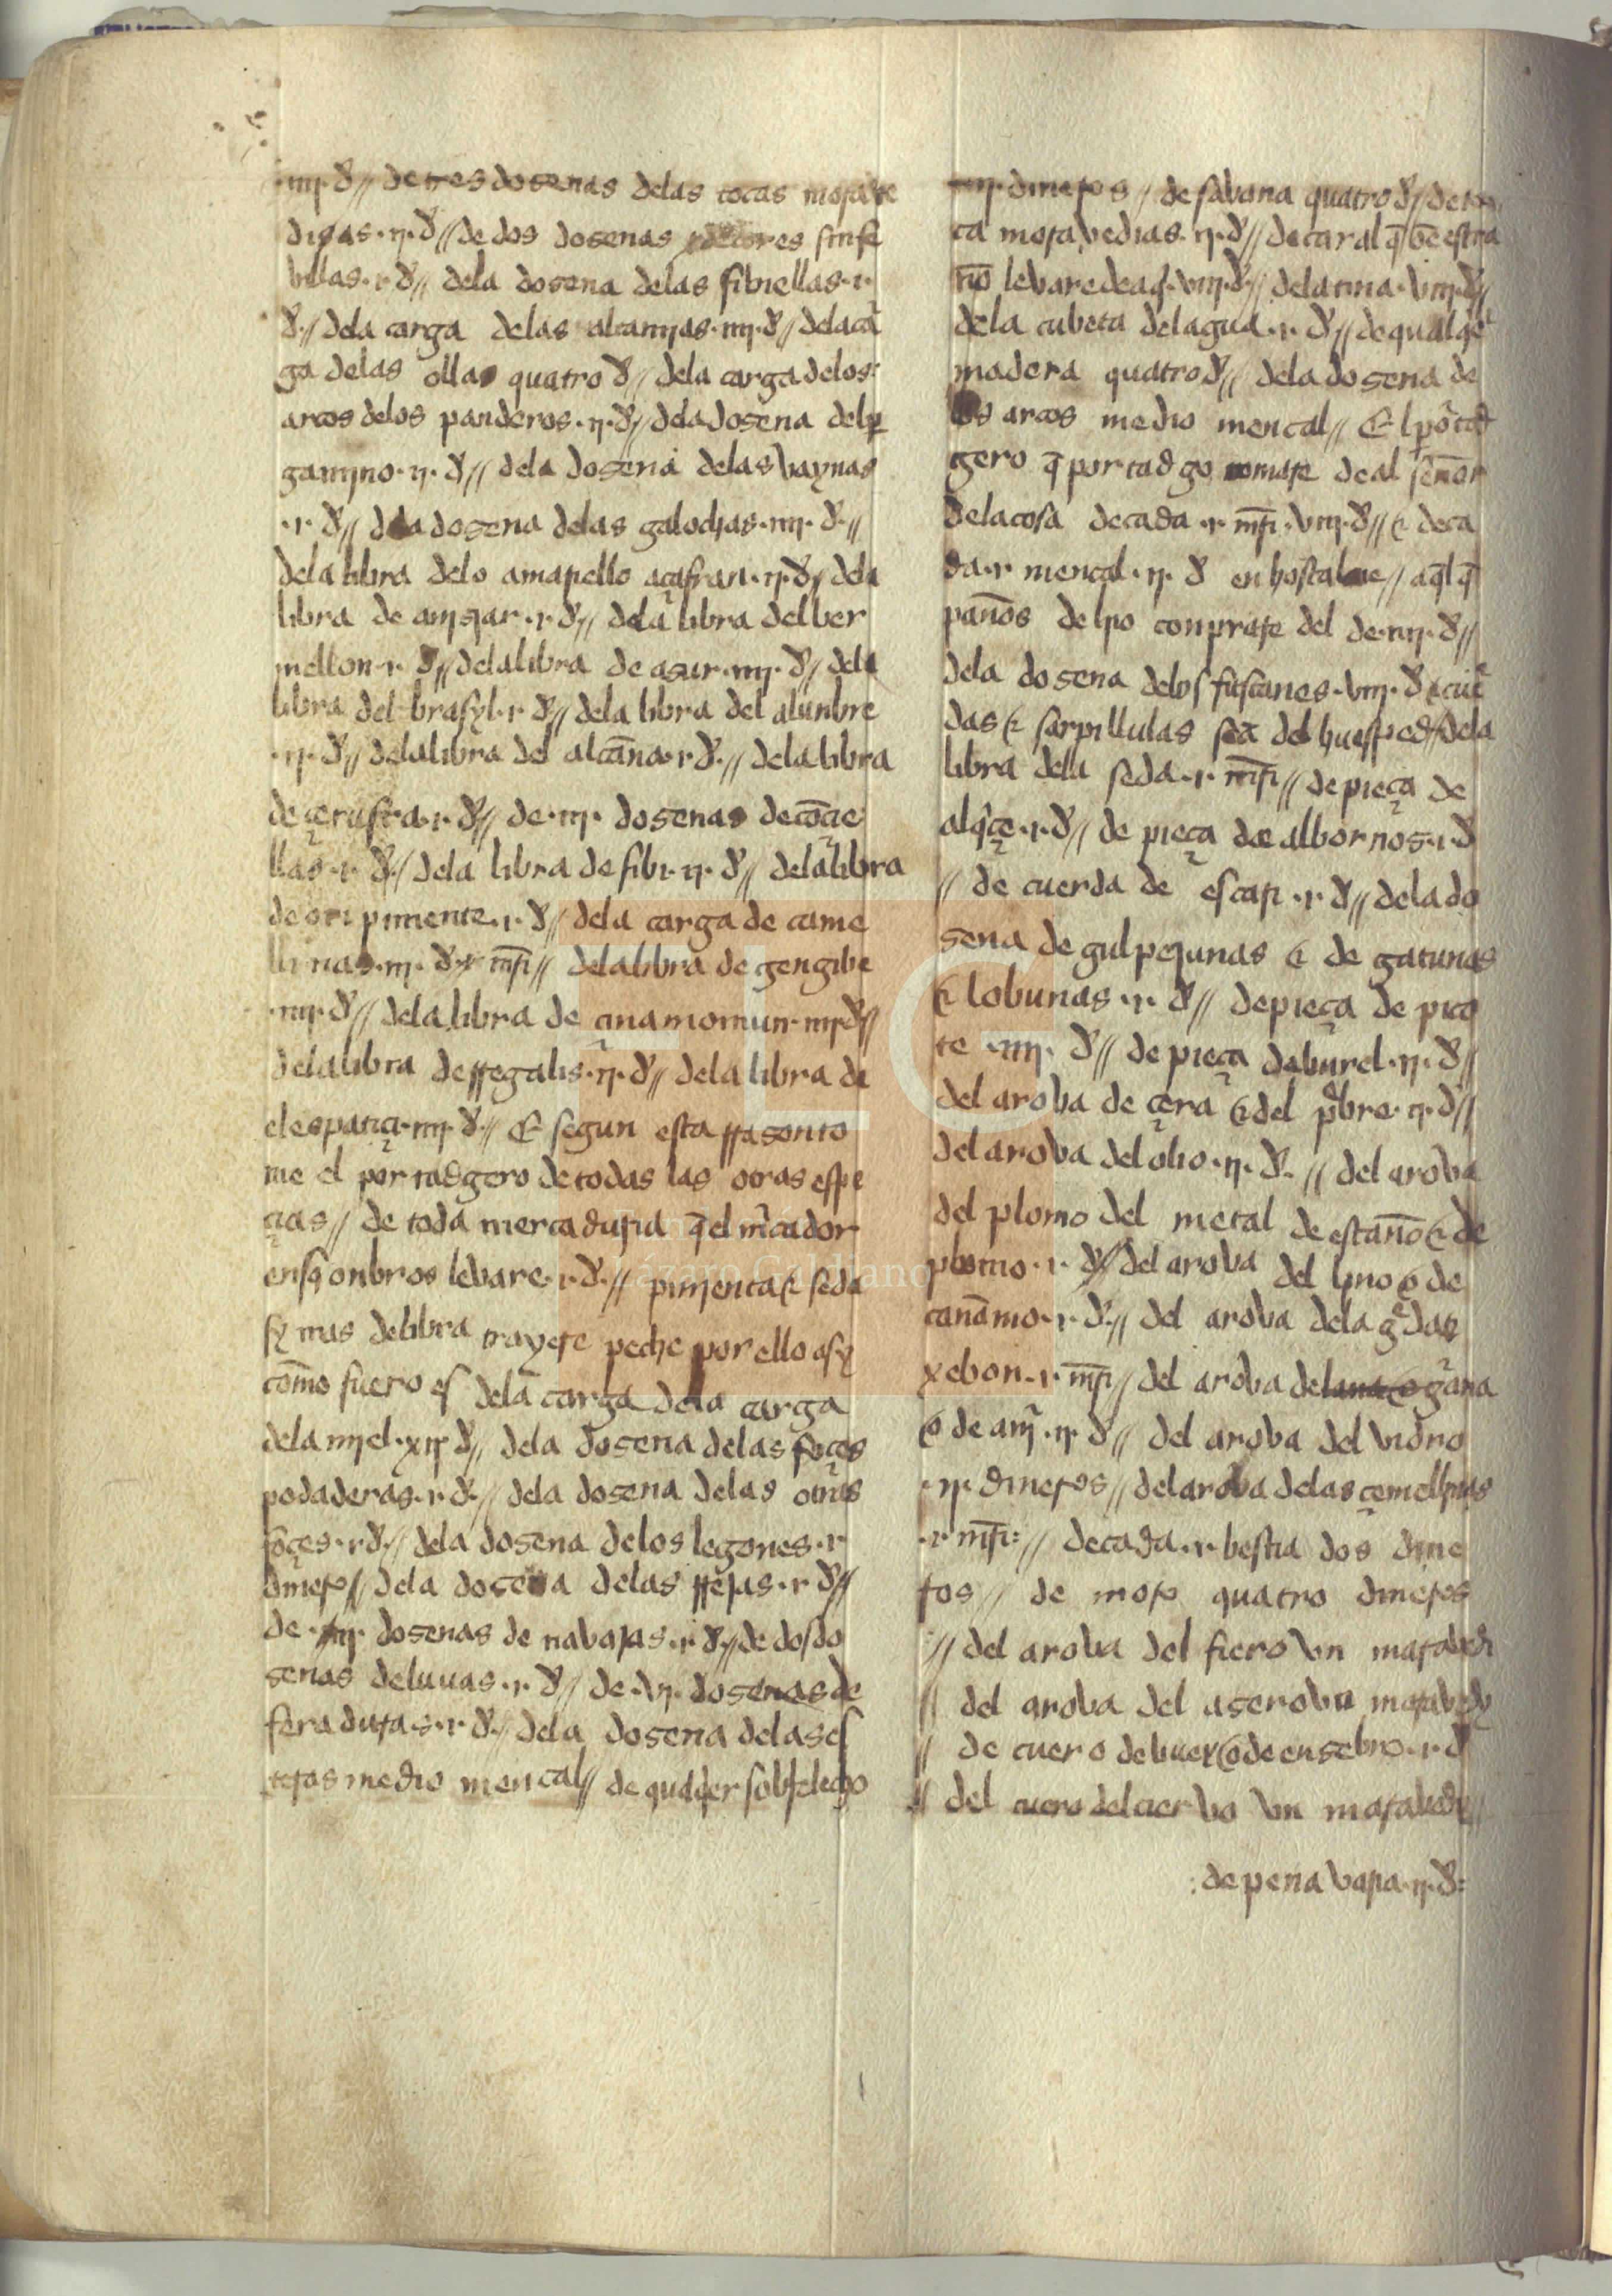 .iiij. d̶// de tres dosenas delas tocas morave
digas .ij. d̶ // de dos dosenas sinfe
villas .i. d̶ // dela dosena delas fibiellas .i.
d̶ // dela carga delas alcamjas .iiij. d̶ // delaca
ga delas ollas quatro d̶ // dela carga delos
arcos delos panderos .ij. d̶ // dela dosena delp
gamjno .ij. d̶ // dela dosena delas vaynas
.i. d̶ // dela dosena delas galochas .iiij. d̶ //
dela libra delo amariello açafran .ij. d̶ // dela
libra de .i. d̶ // dela libra del ber
mellon .i. d̶ // delalibra de asur .iiij. d̶ // dela
libra del brasyl .i. d̶ // dela libra del alunbre
.ij. d̶ // delalibra del alcāna .i. d̶ // delalibra
de çerusra .i. d̶ // de .iij. dosenas decōçie
llas .i. d̶ // dela libra de sibi .ij. d̶ // delalibra
de oripimente .i. d̶ // dela carga de came
llinas .iij. d̶ mr̄i // delalibra de gengibre
.iiij. d̶ // delalibra de çinamomun .iiij. d̶ //
delalibra derregalis .ij. d̶ // dela libra de
elespatiç .iiij. d̶ // E segun esta rrasonto
me el portadgero de todas las otras espe
çias // de toda mercaduria q̄ el m̄cador
ensq̄ onbros levare .i. d̶ // pimjenta & seda
sy mas delibra trayere peche por ello asy
com̄o fuero es dela carga dela carga
dela mjel .xij. d̶ // dela dosena delas foçes
podaderas .i. d̶ // dela dosena delas otras
foçes .i. d̶ // dela dosena delos legones .i.
dinero // dela dosena delas rrejas .i. d̶ //
de .iij. dosenas de navajas .i. d̶ // de dosdo
senas deluuas .i. d̶ // de .vj. dosenas de
feraduras .i. d̶ // dela dosena delases
teras medio mencal // de qualqer sobrelecho
.iiij. dineros // de savana quatro d̶ // deto
ca moravedias .ij. d̶ // decaral q̄ estra
n̄o levaredeaq̄ .viij. d̶ // delatina .viij. d̶ //
dela cubeta delagua .i. d̶ // dequalqe
madera quatro d̶ // dela dosena de
los arcos medio mencal // El portad
gero q̄ portadgo tomare deal señor
delacosa decada .i. mr̄i .viij. d̶ // & deca
da .i. mencal .ij. d̶ en hostalaje // aq̄l q̄
pan̄os delijo conprare del de .iiij. d̶ //
dela dosena delos fustanes .viij. d̶ & cue
das & sarpillulas seā del huesped // dela
libra dela seda .i. mr̄i // de pieça de
alq̄çe .i. d̶ // de pieça de albornos .i. d̶
// de cuerda de escari .i. d̶ // delado
sena de gulpejunas & de gatunas
& lobunas .i. d̶ // depieça de pico
te .iiij. d̶ // de pieça deburel .ij. d̶ //
del aroba de çera & del pebre .ij. d̶ //
del aroba del olio .ij. d̶ // del aroba
del plomo del metal de estan̄o & de
plomo .i. d̶ // del aroba del lino & de
canāmo .i. d̶ // del aroba dela g̃da &
xebon .i. mr̄i // del aroba delana & grana
& de anir .ij. d̶ // del aroba del vidrio
.ij. dineros // del aroba delas çemellinas
.i. mr̄i // decada .i. bestia dos dine
ros // de moro quatro dineros
// del aroba del fiero vn maravedi
// del aroba del asero vn maravedy
// de cuero debuey & de ensebro .i. d̶
// del cuero del ciervo vn maravedy //
: de pena varia .ij. d̶ :